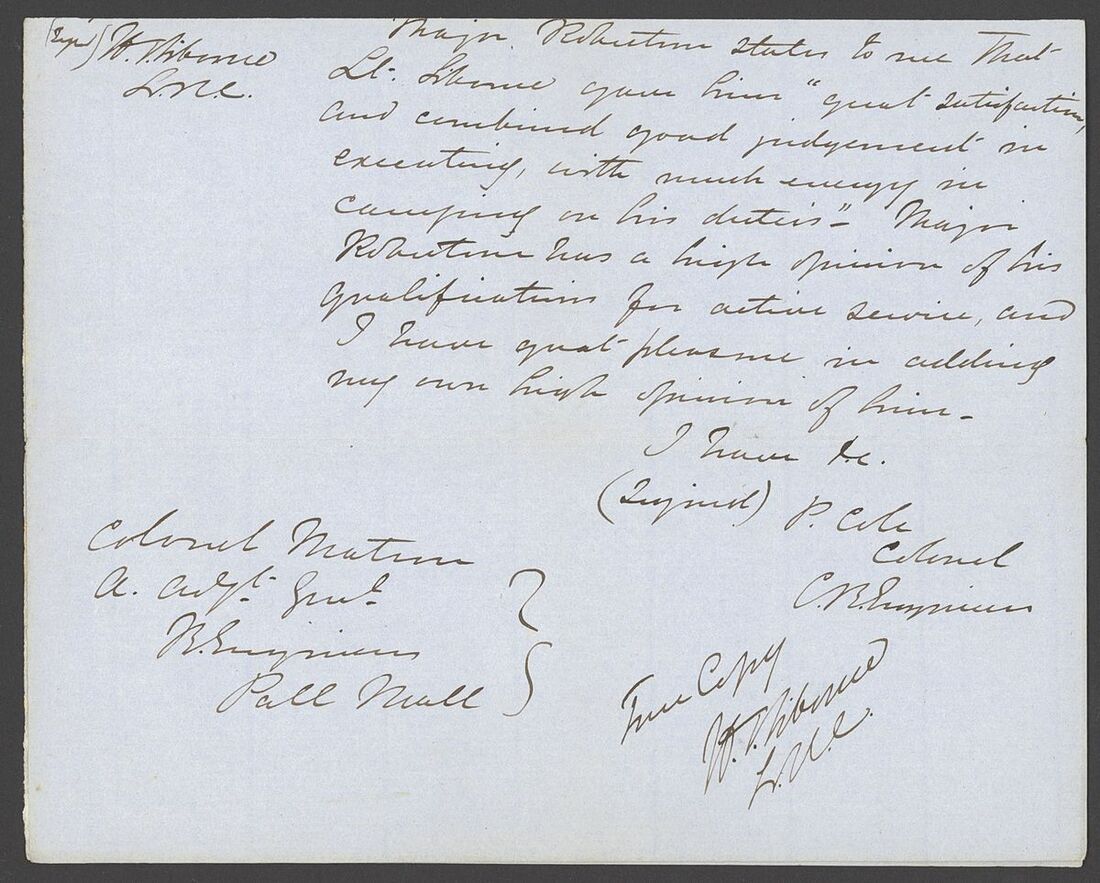 (Signed) H. Siborne
Lt. R.E.
Major Robertson states to me that
Lt. Siborne gave him "great satisfaction,
and combined good judgement in
executing, with much energy in
carrying on his duties" - Major
Robertson has a high opinion of his
qualifications for active service, and
I have great pleasure in adding
my own high opinion of him -
I have &c.
(Signed) P. Cole
Colonel
C.R.Engineers
Colonel Matson
A. Adjt. Genl.
R.Engineers
Pall Mall
True Copy
H. Siborne
Lt. R.E.